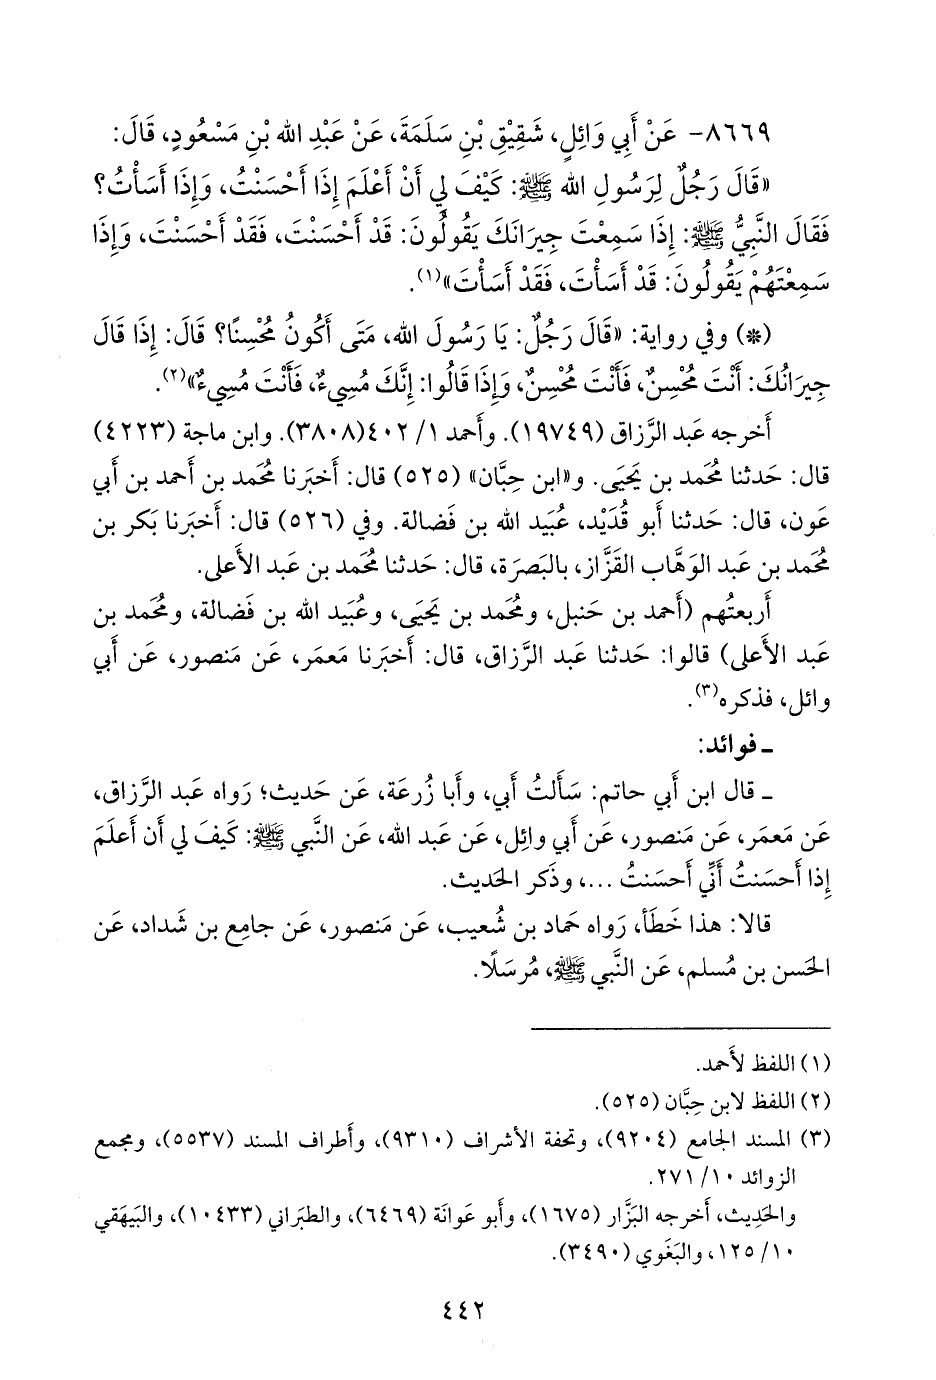 ٨٦٦٩- عَنْ أَبِي وَائِلٍ، شَقِيْقِ بْنِ سَلَمَةَ، عَنْ عَبْدِ الله بْنِ مَسْعُودٍ، قَالَ:
«قَالَ رَجُلٌ لِرَسُولِ الله ﷺ: كَيْفَ لِي أَنْ أَعْلَمَ إِذَا أَحْسَنْتُ، وَإِذَا أَسَأْتُ؟
فَقَالَ النَّبِيُّ ﷺ: إِذَا سَمِعْتَ جِيرَانَكَ يَقُولُونَ: قَدْ أَحْسَنْتَ، فَقَدْ أَحْسَنْتَ، وَإِذَا
سَمِعْتَهُمْ يَقُولُونَ: قَدْ أَسَأْتَ، فَقَدْ أَسَأْتَ»(١).
(*) وفي رواية: «قَالَ رَجُلٌ: يَا رَسُولَ الله، مَتَى أَكُونُ مُحْسِنًا؟ قَالَ: إِذَا قَالَ
جِيرَانُكَ: أَنْتَ مُحْسِنٌ، فَأَنْتَ مُحْسِنٌ، وَإِذَا قَالُوا: إِنَّكَ مُسِيءٌ، فَأَنْتَ مُسِيءٌ»(٢).
أَخرجه عَبد الرَّزاق (١٩٧٤٩). وأَحمد ١/ ٤٠٢(٣٨٠٨). وابن ماجة (٤٢٢٣)
قال: حَدثنا مُحَمد بن يَحيَى. و«ابن حِبَّان» (٥٢٥) قال: أَخبَرنا مُحَمد بن أَحمد بن أَبي
عَون، قال: حَدثنا أَبو قُدَيْد، عُبَيد الله بن فَضالة. وفي (٥٢٦) قال: أَخبَرنا بَكر بن
مُحَمد بن عَبد الوَهَّاب القَزَّاز، بالبَصرَة، قال: حَدثنا مُحَمد بن عَبد الأَعلى.
أَربعتُهم (أَحمد بن حَنبل، ومُحَمد بن يَحيَى، وعُبَيد الله بن فَضالة، ومُحَمد بن
عَبد الأَعلى) قالوا: حَدثنا عَبد الرَّزاق، قال: أَخبَرنا مَعمَر، عَن مَنصور، عَن أَبي
وائل، فذكره(٣).
ـ فوائد:
ـ قال ابن أَبي حاتم: سَأَلتُ أَبي، وأَبا زُرعَة، عَن حَديث؛ رَواه عَبد الرَّزاق،
عَن مَعمَر، عَن مَنصور، عَن أَبي وائِل، عَن عَبد الله، عَن النَّبي ﷺ: كَيفَ لي أَن أَعلَمَ
إِذا أَحسَنتُ أَنِّي أَحسَنتُ ...، وذَكر الحَديث.
قالا: هذا خَطَأ، رَواه حماد بن شُعيب، عَن مَنصور، عَن جامِع بن شداد، عَن
الحَسن بن مُسلم، عَن النَّبي ﷺ، مُرسَلًا.
(١) اللفظ لأَحمد.
(٢) اللفظ لابن حِبَّان (٥٢٥).
(٣) المسند الجامع (٩٢٠٤)، وتحفة الأشراف (٩٣١٠)، وأَطراف المسند (٥٥٣٧)، ومجمع
الزوائد ١٠/ ٢٧١.
والحَدِيث، أَخرجه البَزَّار (١٦٧٥)، وأَبو عَوانَة (٦٤٦٩)، والطبَراني (١٠٤٣٣)، والبَيهَقي
١٠/ ١٢٥، والبَغَوي (٣٤٩٠).
٤٤٢